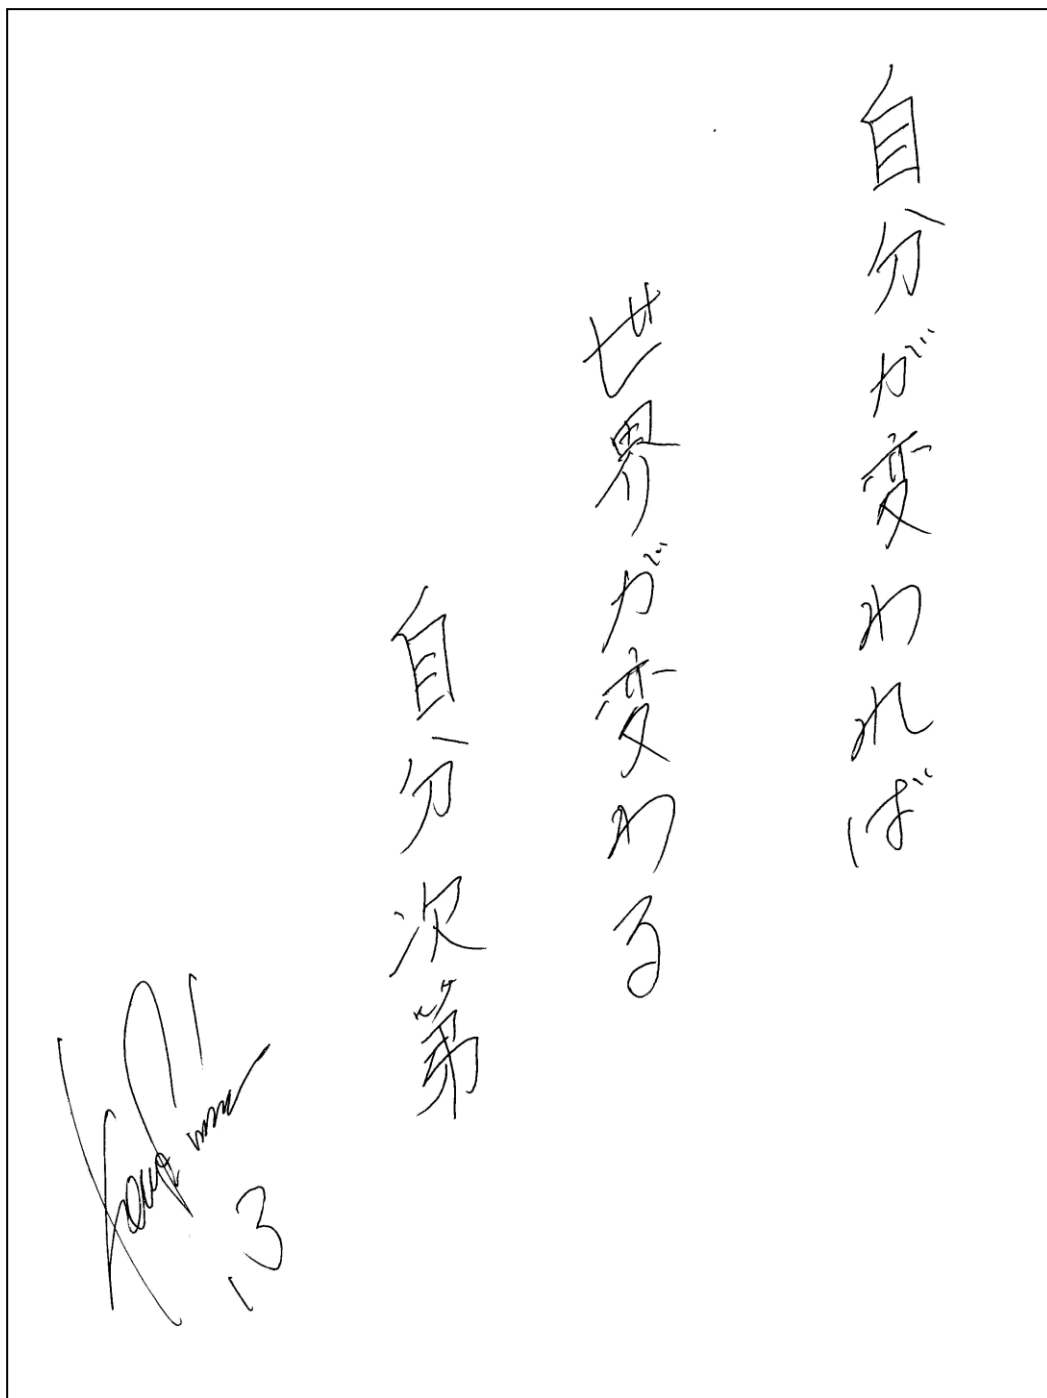 自分が変われば
世界が変わる
自分次第
13